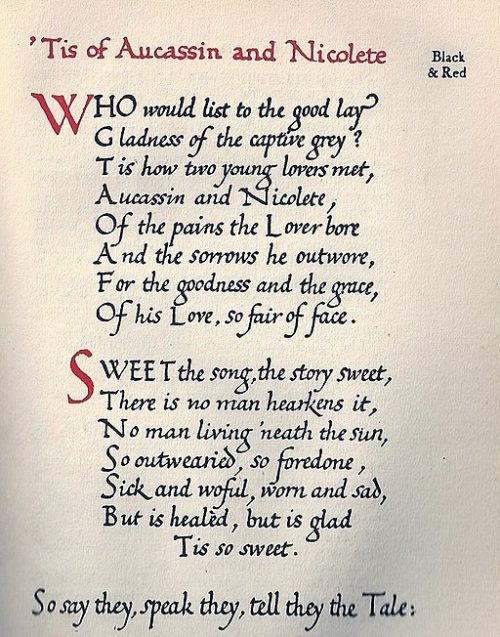 'Tis of Aucassin and Nicolete
Black
& Red
WHO would list to the good lay
Gladness of the captive grey?
Tis how two young lovers met,
Aucassin and Nicolete,
Of the pains the Lover bore
And the sorrows he outwore,
For the goodness and the grace,
Of his Love, so fair of face.
SWEET the song, the story sweet,
There is no man hearkens it,
No man living 'neath the sun,
So outwearied, so foredone,
Sick and woful, worn and sad,
But is healèd, but is glad
Tis so sweet.
So say they, speak they, tell they the Tale: